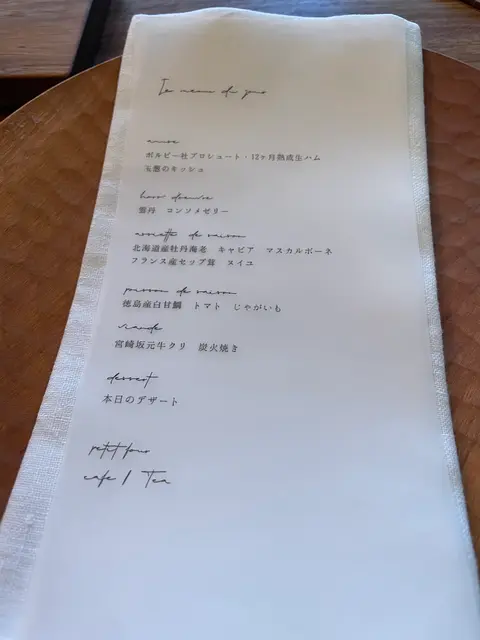 Le menu du jour
amuse
ボルピー社プロシュート・12ヶ月熟成生ハム
玉葱のキッシュ
hors d'œuvre
雲丹 コンソメゼリー
assiette de saison
北海道産牡丹海老 キャビア マスカルポーネ
フランス産セップ茸 ヌイユ
poisson de saison
徳島産白甘鯛 トマト じゃがいも
viande
宮崎坂元牛クリ 炭火焼き
dessert
本日のデザート
petit four
cafe / Tea